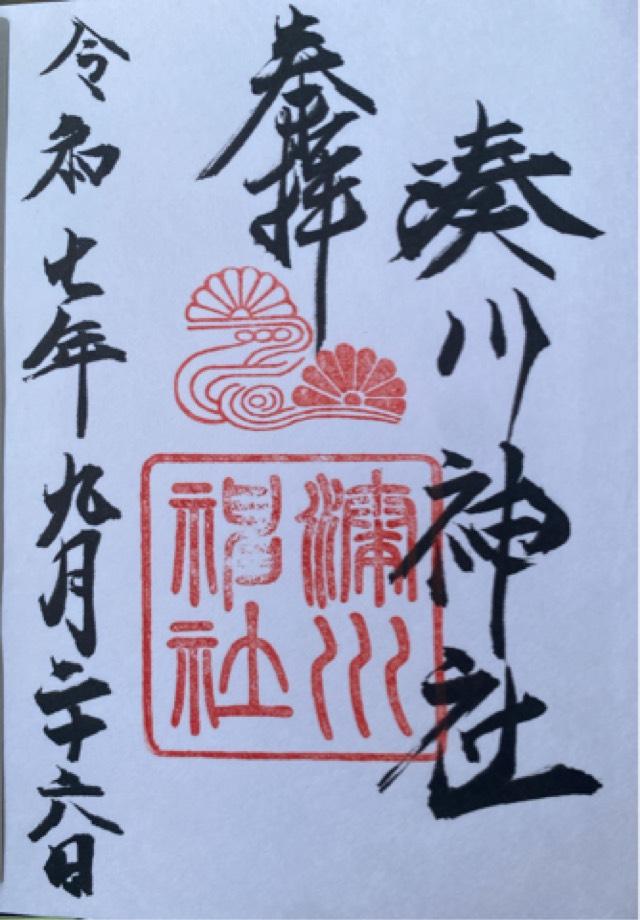 湊川神社
奉拝
湊川
神社
令和七年九月二十六日